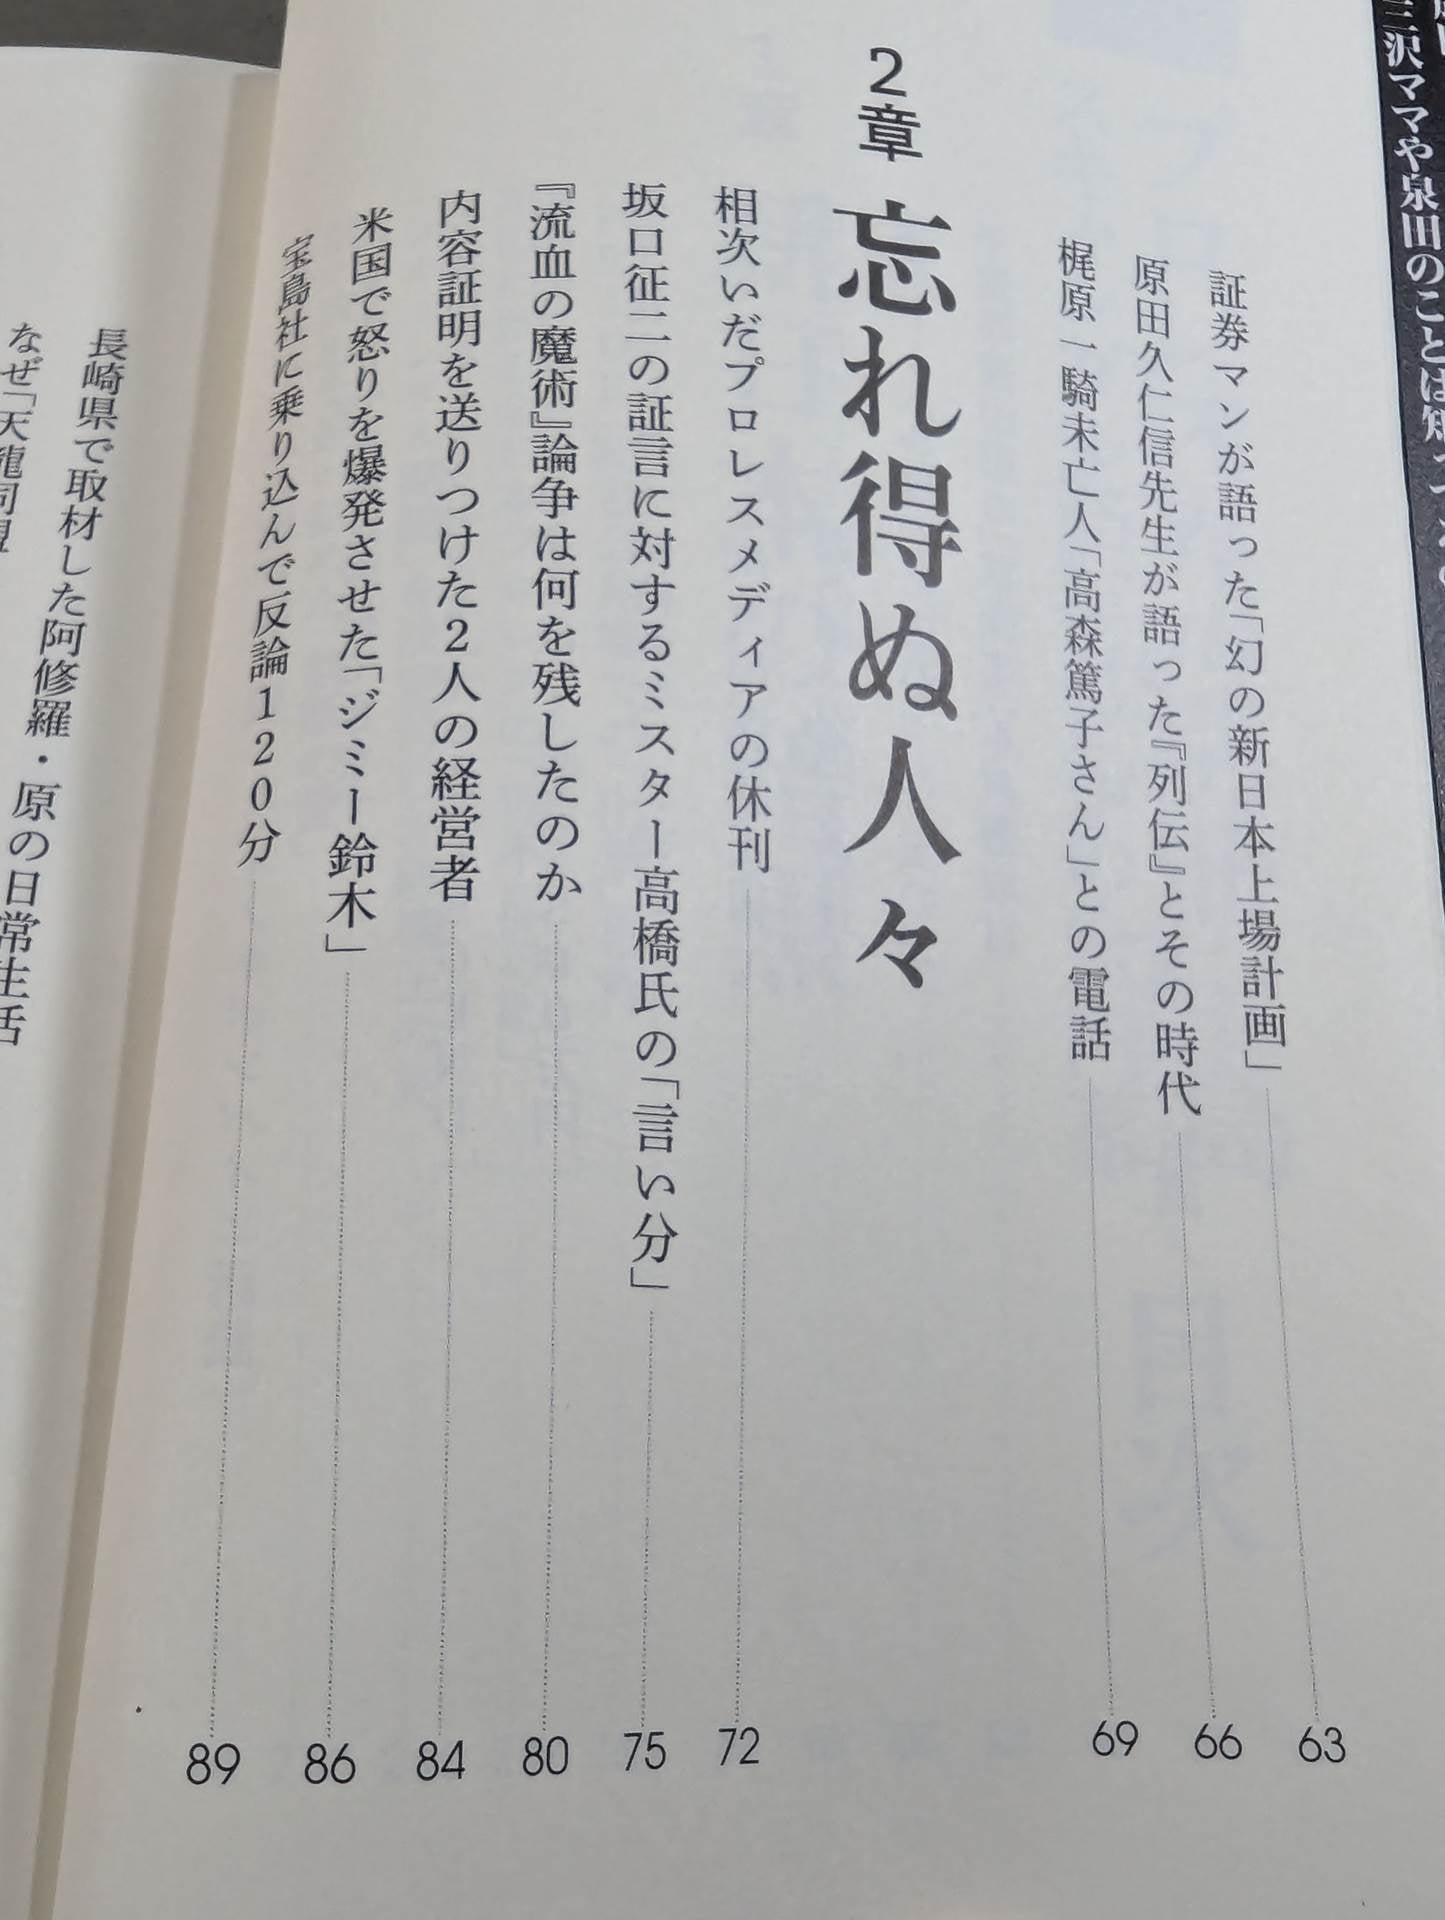 三沢ママや泉田のことは
証券マンが語った「幻の新日本上場計画」 63
原田久仁信先生が語った『列伝』とその時代 66
梶原一騎未亡人「高森篤子さん」との電話 69
2章 忘れ得ぬ人々
相次いだプロレスメディアの休刊 72
坂口征二の証言に対するミスター高橋氏の「言い分」 75
『流血の魔術』論争は何を残したのか 80
内容証明を送りつけた2人の経営者 84
米国で怒りを爆発させた「ジミー鈴木」 86
宝島社に乗り込んで反論120分 89
長崎県で取材した阿修羅・原の日常生活
なぜ「天龍同盟